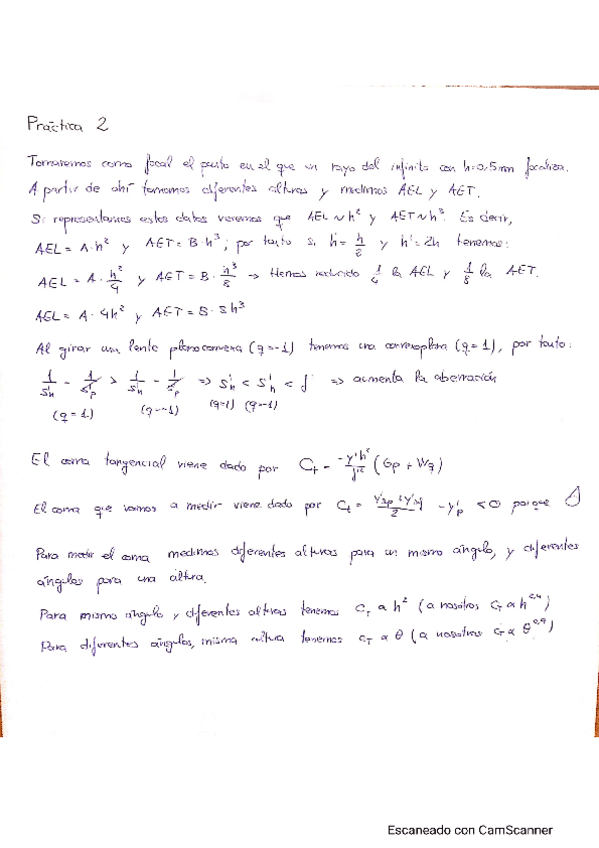 Práctica 2
Tomaremos como focal el punto en el que un rayo del infinito con h=0,5mm focaliza.
A partir de ahí tomamos diferentes alturas y medimos AEL y AET.
Si representamos estos datos veremos que AEL ~ h² y AET ~ h³. Es decir,
AEL = A·h² y AET = B·h³; por tanto si h' = h/2 y h' = 2h tenemos:
AEL = A·h²/4 y AET = B·h³/8 → Hemos reducido 1/4 la AEL y 1/8 la AET.
AEL = A·4h² y AET = B·8h³
Al girar una lente planoconvexa (q=-1) tenemos una convexoplana (q=1), por tanto:
1/S'h - 1/S'p > 1/S'h - 1/S'p ⇒ S'h < S'h < f' ⇒ aumenta la aberración
(q=1) (q=-1) (q=1) (q=-1)
El coma tangencial viene dado por Ct = -y'h²/f'² (Gp + Wq)
El coma que vamos a medir viene dado por Ct = - y'p < 0 porque
Para medir el coma medimos diferentes alturas para un mismo ángulo, y diferentes
ángulos para una altura.
Para mismo ángulo y diferentes alturas tenemos CT ∝ h² (a nosotros CT ∝ h)
Para diferentes ángulos, misma altura tenemos CT ∝ θ (a nosotros CT ∝ θ^0,9)
Escaneado con CamScanner